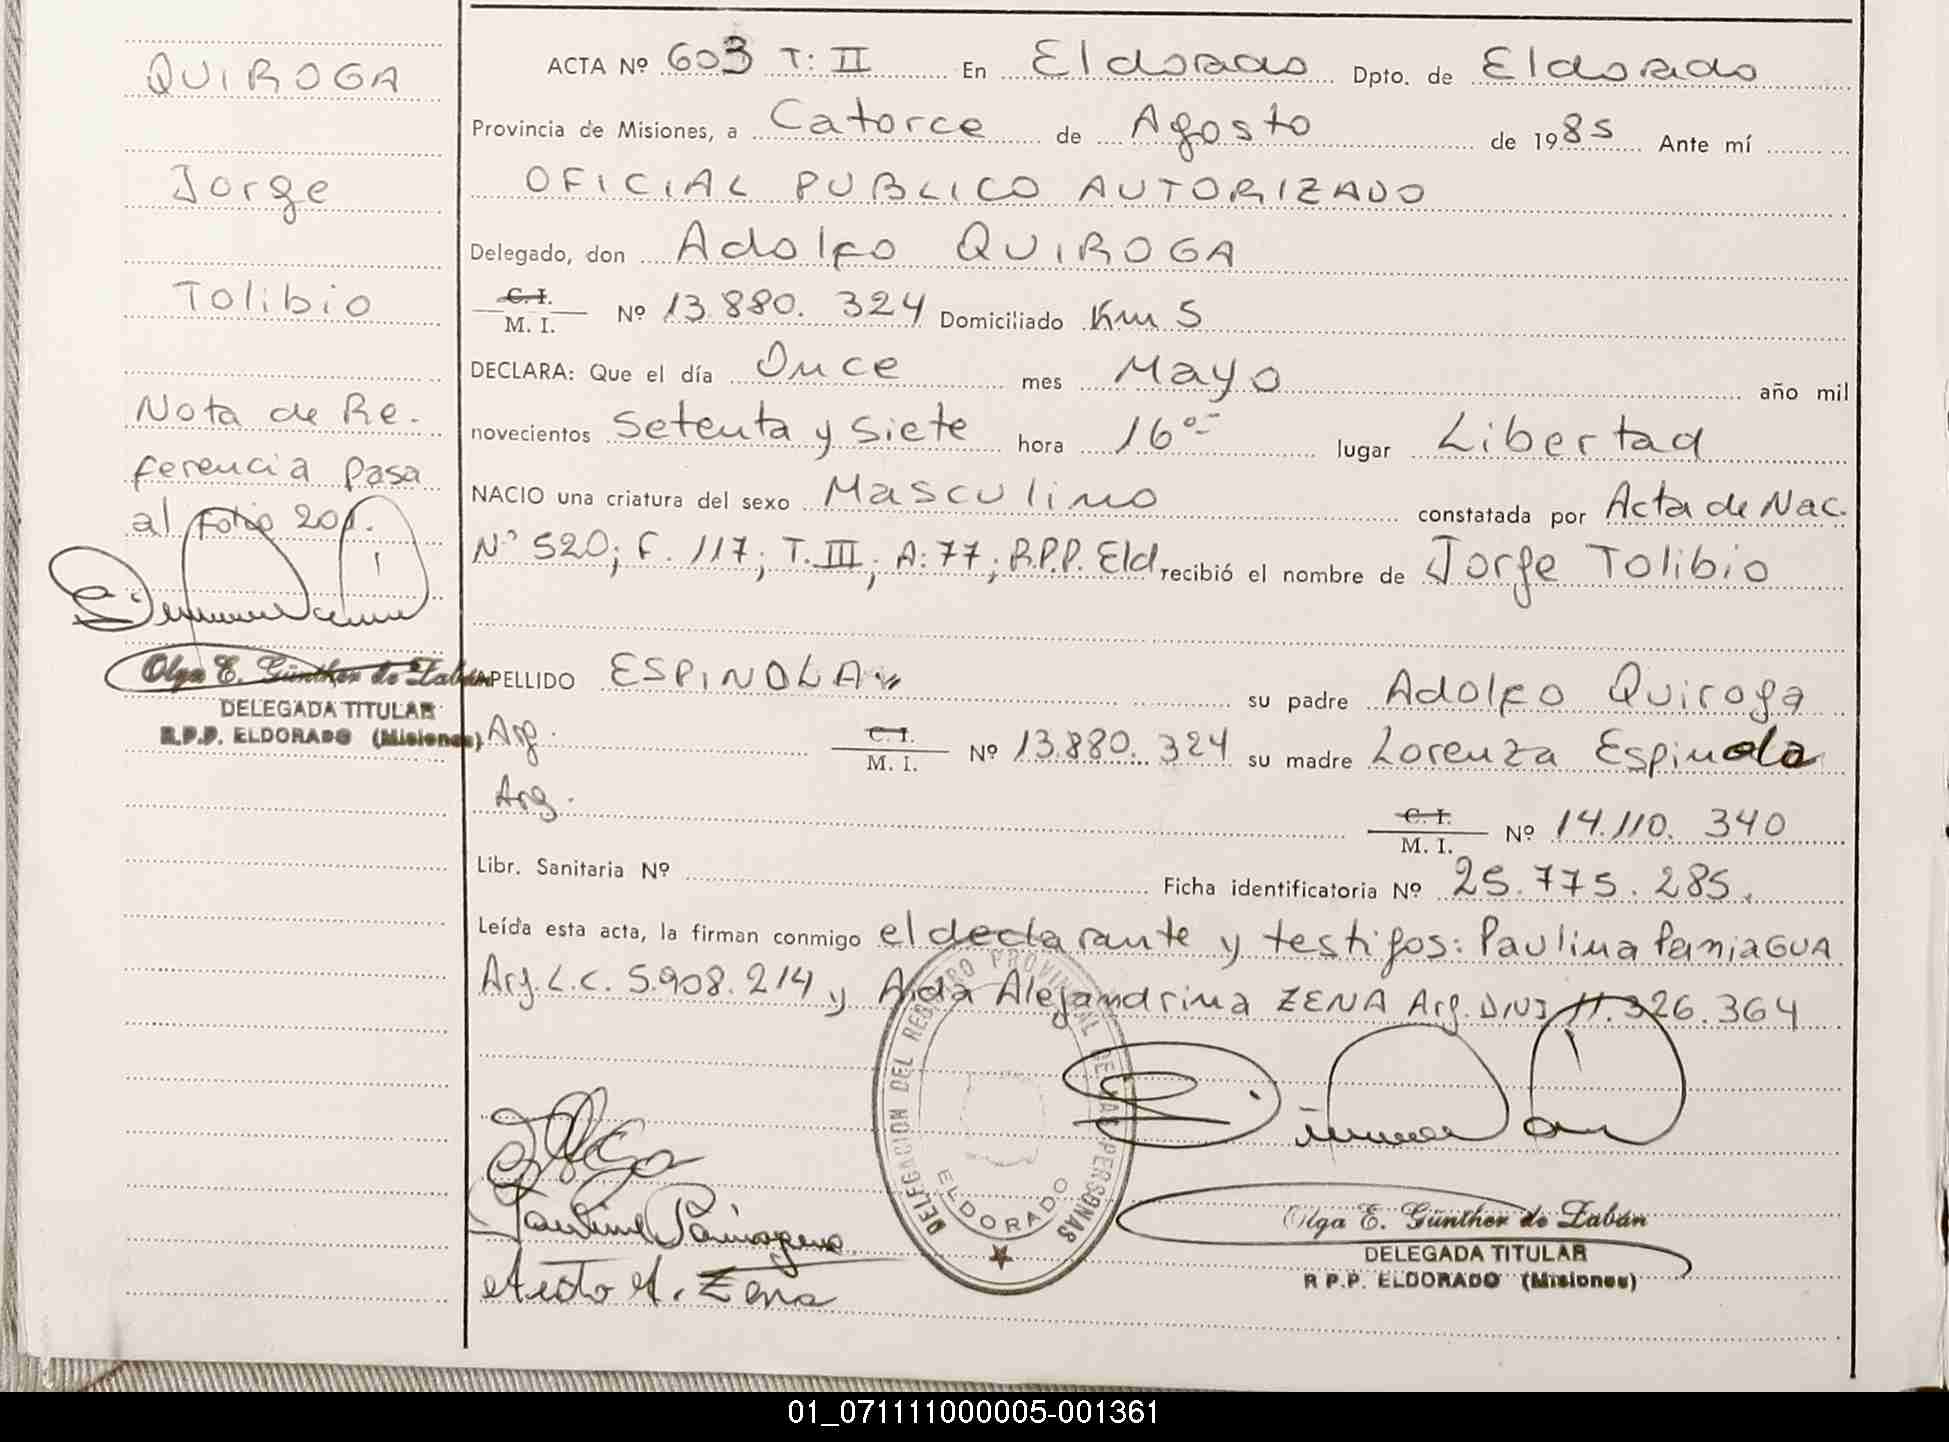 QUIROGA
Jorge
Tolibio
Nota de Re.
ferencia pasa
al Folio 201.
Olga E. Günther de Zabán
DELEGADA TITULAR
R.P.P. ELDORADO (Misiones)
ACTA Nº 603 T: II En Eldorado Dpto. de Eldorado
Provincia de Misiones, a Catorce de Agosto de 1985 Ante mí
OFICIAL PUBLICO AUTORIZADO
Delegado, don Adolfo QUIROGA
C. I.
M. I. Nº 13.880. 324 Domiciliado Km 5
DECLARA: Que el día Once mes Mayo año mil
novecientos setenta y siete hora 16 lugar Libertad
NACIO una criatura del sexo Masculino constatada por Acta de Nac.
Nº 520; F. 117; T. III; A: 77; R.P.P. Eld recibió el nombre de Jorge Tolibio
APELLIDO ESPINOLA su padre Adolfo Quiroga
Arg. C. I.
M. I. Nº 13.880. 324 su madre Lorenza Espinola
Arg. C. I.
M. I. Nº 14.110. 340
Libr. Sanitaria Nº Ficha identificatoria Nº 25.775.285.
Leída esta acta, la firman conmigo el declarante y testigos: Paulina PaniaGUA
Arg. L.C. 5.908.214 y Aida Alejandrina ZENA Arg. DNI 11.326.364
DELEGACION DEL REGISTRO PROVINCIAL DE LAS PERSONAS
ELDORADO
Olga E. Günther de Zabán
DELEGADA TITULAR
R P.P. ELDORADO (Misiones)
01_071111000005-001361